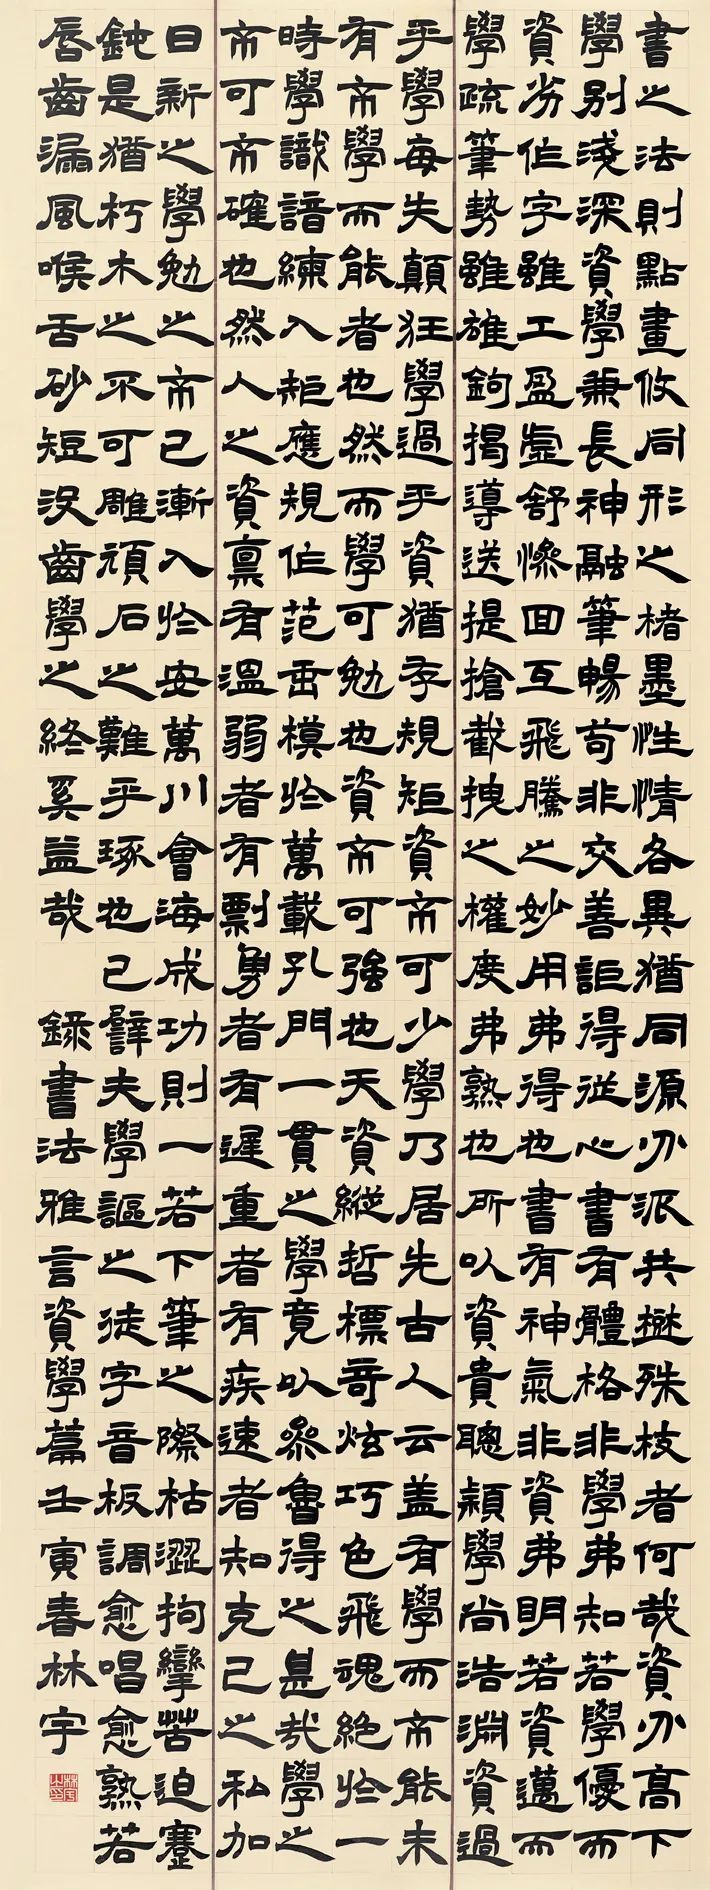 書之法則點畫攸同形之楮墨性情各異猶同源分派共樹殊枝者何哉資分高下
學别淺深資學兼長神融筆暢苟非交善詎得從心書有體格非學弗知若學優而
資劣作字雖工盈虛舒慘回互飛騰之妙用弗得也書有神氣非資弗明若資邁而
學疏筆勢雖雄鉤揭導送提搶截拽之權度弗熟也所以資貴聰穎學尚浩淵資過
乎學每失顛狂學過乎資猶存規矩資不可少學乃居先古人云盖有學而不能未
有不學而能者也然而學可勉也資不可強也天資縱哲標奇炫巧色飛魂絕於一
時學識諳練入矩應規作范垂模於萬載孔門一貫之學竟以參魯得之甚哉學之
不可不確也然人之資禀有溫弱者有剽勇者有遲重者有疾速者知克己之私加
日新之學勉之不已漸入於安萬川會海成功則一若下筆之際枯澀拘攣苦迫蹇
鈍是猶朽木之不可雕頑石之難乎琢也已譬夫學謳之徒字音板調愈唱愈熟若
唇齒漏風喉舌砂短沒齒學之終奚益哉 錄書法雅言資學篇壬寅春林宇
林宇之印